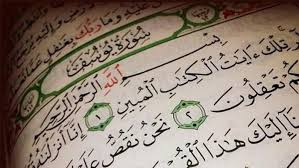 وَمَا رَبُّكَ بِغَافِلٍ
سُورَةُ يُوسُفَ
بِسْمِ اللَّهِ الرَّحْمَٰنِ الرَّحِيمِ
تِلْكَ ءَايَٰتُ الْكِتَٰبِ الْمُبِينِ ١ إِنَّا أَنزَلْنَ
تَعْقِلُونَ ٢ نَحْنُ نَقُصُّ عَ
إِلَيْكَ هَٰذَا الْقُرْ